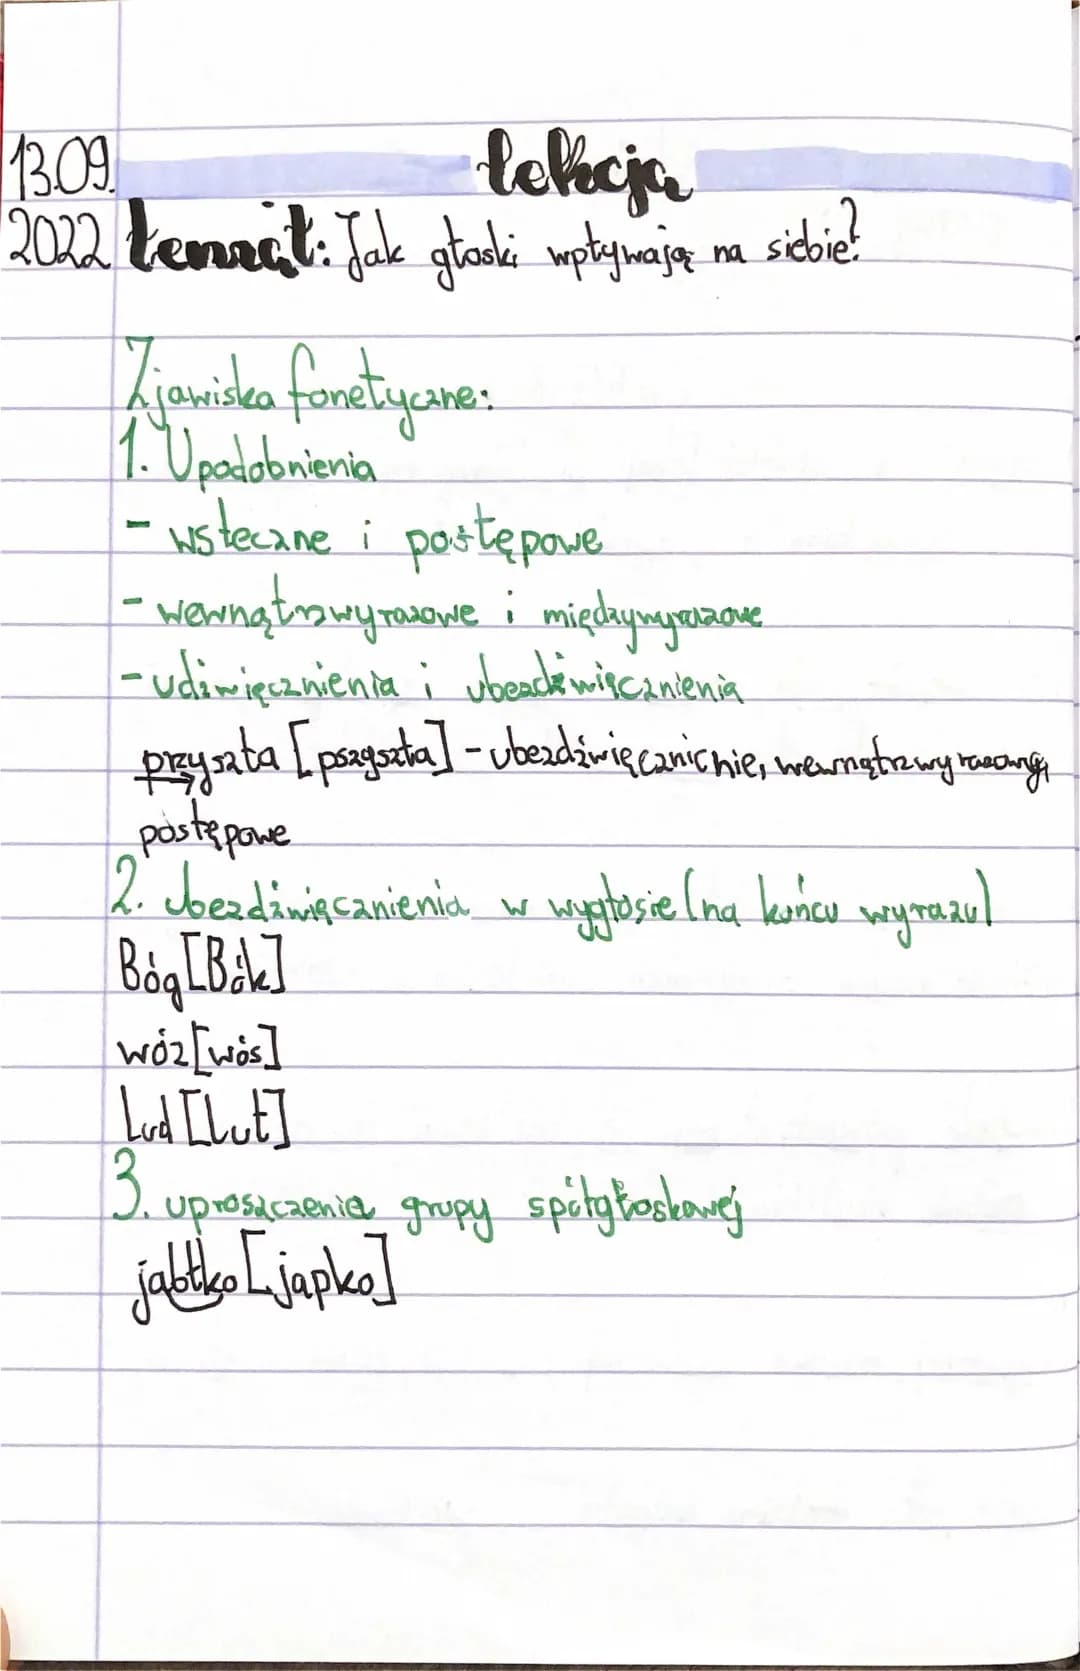 13.09. lekcja
2022 temat: Jak głoski wpływają na siebie?
Zjawiska fonetyczne:
1. Upodobnienia
- wsteczne i postępowe
- wewnątrzwyrazowe i międzywyrazowe
- udźwięcznienia i ubezdźwięcznienia
przyszła [pszyszła] - ubezdźwięcznichie, wewnątrzwyrazowe,
postępowe
2. ubezdźwięcznienia w wygłosie (na końcu wyrazu)
Bóg [Bók]
wóz [wós]
Lud [Lut]
3. uproszczenia grupy spółgłoskowej
jabłko [japko]